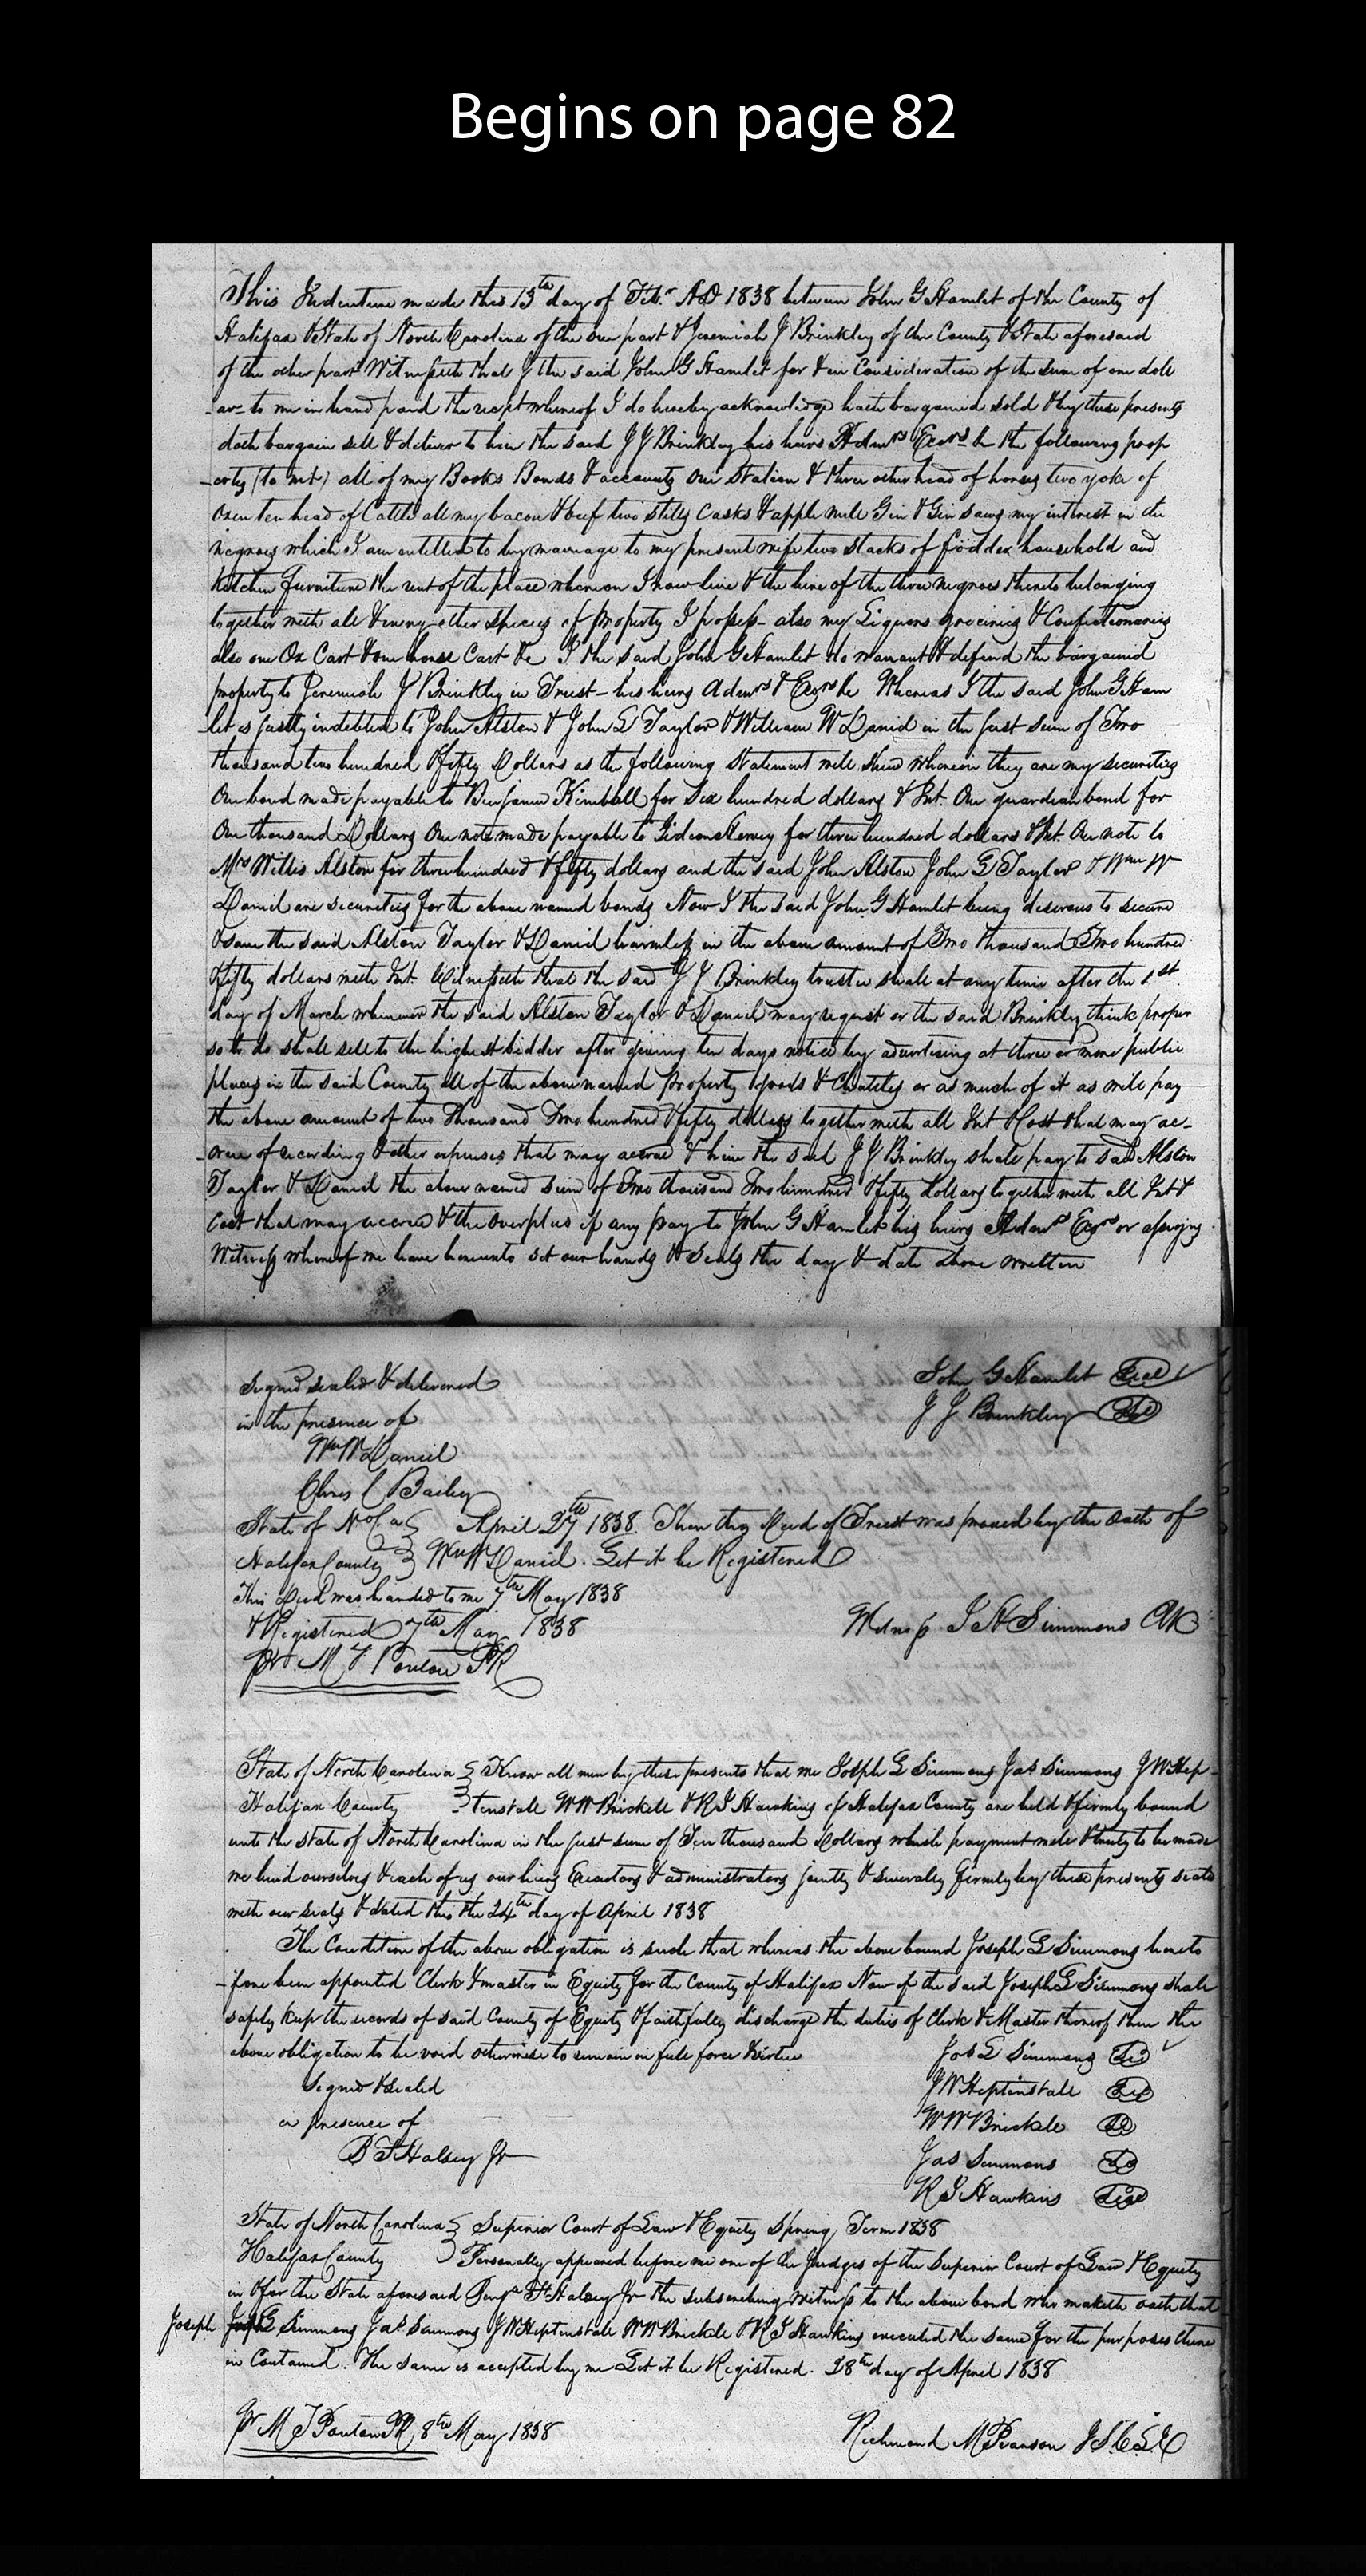 Begins on page 82
This Indenture made this 13th day of Feb. AD 1838 between John G Hamlet of the County of
Halifax & State of North Carolina of the one part & Jeremiah J Brinkley of the County & State aforesaid
of the other part Witnesseth that I the said John G Hamlet for & in Consideration of the sum of one doll
-ar- to me in hand paid the recpt whereof I do hereby acknowledge hath bargained sold & by these presents
doth bargain sell & deliver to him the said J J Brinkley his heirs Admrs Exors &c the following prop
-erty (to wit) all of my Books Bonds & accounts one Stalion & three other head of horses two yoke of
Oxen ten head of Cattle all my bacon & beef two stills Casks & apple mill Gin & Gin saws my interest in the
negroes which I am entitled to by marriage to my present wife two stacks of fodder household and
kitchen furniture the rent of the place whereon I now live & the hire of the three negroes thereto belonging
together with all & every other species of property I possess- also my Liquors groceries & Confectionaries
also one Ox Cart & one horse Cart &c I the said John G Hamlet do warrant & defend the bargained
property to Jeremiah J Brinkley in Trust- his heirs Admrs & Exors &c Whereas I the said John G Ham
-let is justly indebted to John Alston & John G Taylor & William W Daniel in the just sum of Two
thousand two hundred & fifty Dollars as the following Statement will shew wherein they are my securities
One bond made payable to Benjamin Kimball for Six hundred dollars & Int. One guardian bond for
One thousand Dollars One note made payable to Gideon for three hundred dollars & Int. One note to
Mrs Willis Alston for three hundred & fifty dollars and the said John Alston John G Taylor & Wm W
Daniel are securities for the above named bonds Now I the said John G Hamlet being desirous to secure
& save the said Alston Taylor & Daniel harmless in the above amount of Two thousand Two hundred
& fifty dollars with Int. Witnesseth that the said J J Brinkley trustee shall at any time after the 1st
day of March whenever the said Alston Taylor & Daniel may request or the said Brinkley think proper
so to do shall sell to the highest bidder after giving ten days notice by advertising at three or more public
places in the said County all of the above named property goods & Chattels or as much of it as will pay
the above amount of two thousand Two hundred & fifty dollars together with all Int & Cost that may ac-
-crue of recording & other expenses that may accrue & him the said J J Brinkley shall pay to said Alston
Taylor & Daniel the above named sum of Two thousand Two hundred & fifty dollars together with all Int &
Cost that may accrue & the overplus if any pay to John G Hamlet his heirs Admrs Exors or assigns
Witness whereof we have hereunto set our hands & Seals the day & date above written
Signed sealed & delivered John G Hamlet Seal
in the presence of J J Brinkley
Wm W Daniel
Chris C Bailey
State of No Ca April 27th 1838. Then this Deed of Trust was proved by the Oath of
Halifax County Wm W Daniel. Let it be Registered
This Deed was handed to me 7th May 1838
& Registered 7th May 1838 Witness J H Simmons Clk
pr. M T Ponton PR
State of North Carolina Know all men by these presents that we Joseph L Simmons Jas Simmons J W Hep-
Halifax County -tinstall W W Brickell & R J Hawkins of Halifax County are held & firmly bound
unto the State of North Carolina in the just sum of Ten thousand Dollars which payment well & truly to be made
we bind ourselves & each of us our heirs Executors & administrators jointly & severally firmly by these presents seald
with our seals & dated this the 24th day of April 1838
The Condition of the above obligation is such that whereas the above bound Joseph L Simmons hereto
-fore been appointed Clerk & master in Equity for the County of Halifax Now if the said Joseph L Simmons shall
safely keep the records of said County of Equity & faithfully discharge the duties of Clerk & Master thereof then the
above obligation to be void otherwise to remain in full force & virtue Jos L Simmons
Signed & sealed J W Heptinstall
in presence of W W Brickle
B F Halsey Jr Jas Simmons
R J Hawkins Seal
State of North Carolina Superior Court of Law & Equity Spring Term 1838
Halifax County Personally appeared before me one of the Judges of the Superior Court of Law & Equity
in & for the State aforesaid Benja F Halsey Jr the subscribing witness to the above bond who maketh oath that
Joseph L Simmons Jas Simmons J W Heptinstall W W Brickle & R J Hawkins executed the same for the purposes there
in Contained. The same is accepted by me Let it be Registered. 28th day of April 1838
pr M T Ponton PR 8th May 1838 Richmond M Pearson J S C L & E